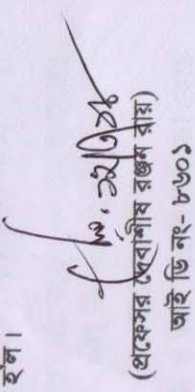 হ'ল।
(প্রফেসর দেবাশীষ রঞ্জন রায়)
আই ডি নং- ৮৬০১